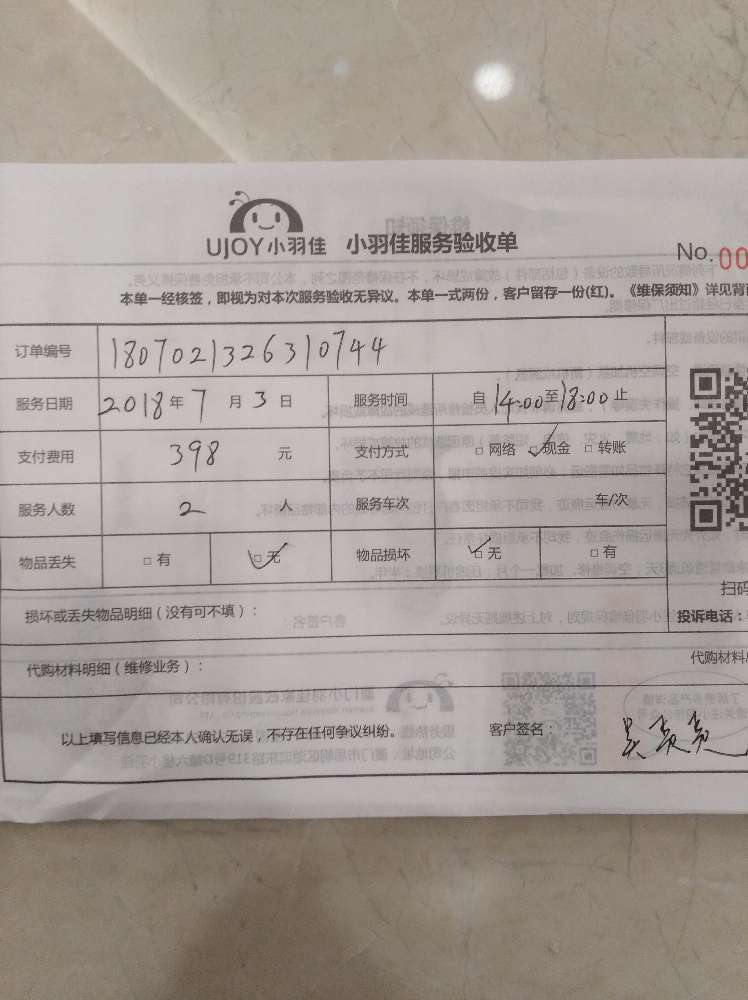 UJOY小羽佳 小羽佳服务验收单
No. 00
本单一经核签，即视为对本次服务验收无异议。本单一式两份，客户留存一份(红)。《维保须知》详见背
订单编号 1807021326310744
服务日期 2018年7月3日 服务时间 自14:00至18:00止
支付费用 398 元 支付方式 □网络 ☑现金 □转账
服务人数 2 人 服务车次 车/次
物品丢失 □有 ☑无 物品损坏 ☑无 □有
扫码
损坏或丢失物品明细（没有可不填）： 投诉电话：
代购材料明细（维修业务）： 代购材料
以上填写信息已经本人确认无误，不存在任何争议纠纷。 客户签名：